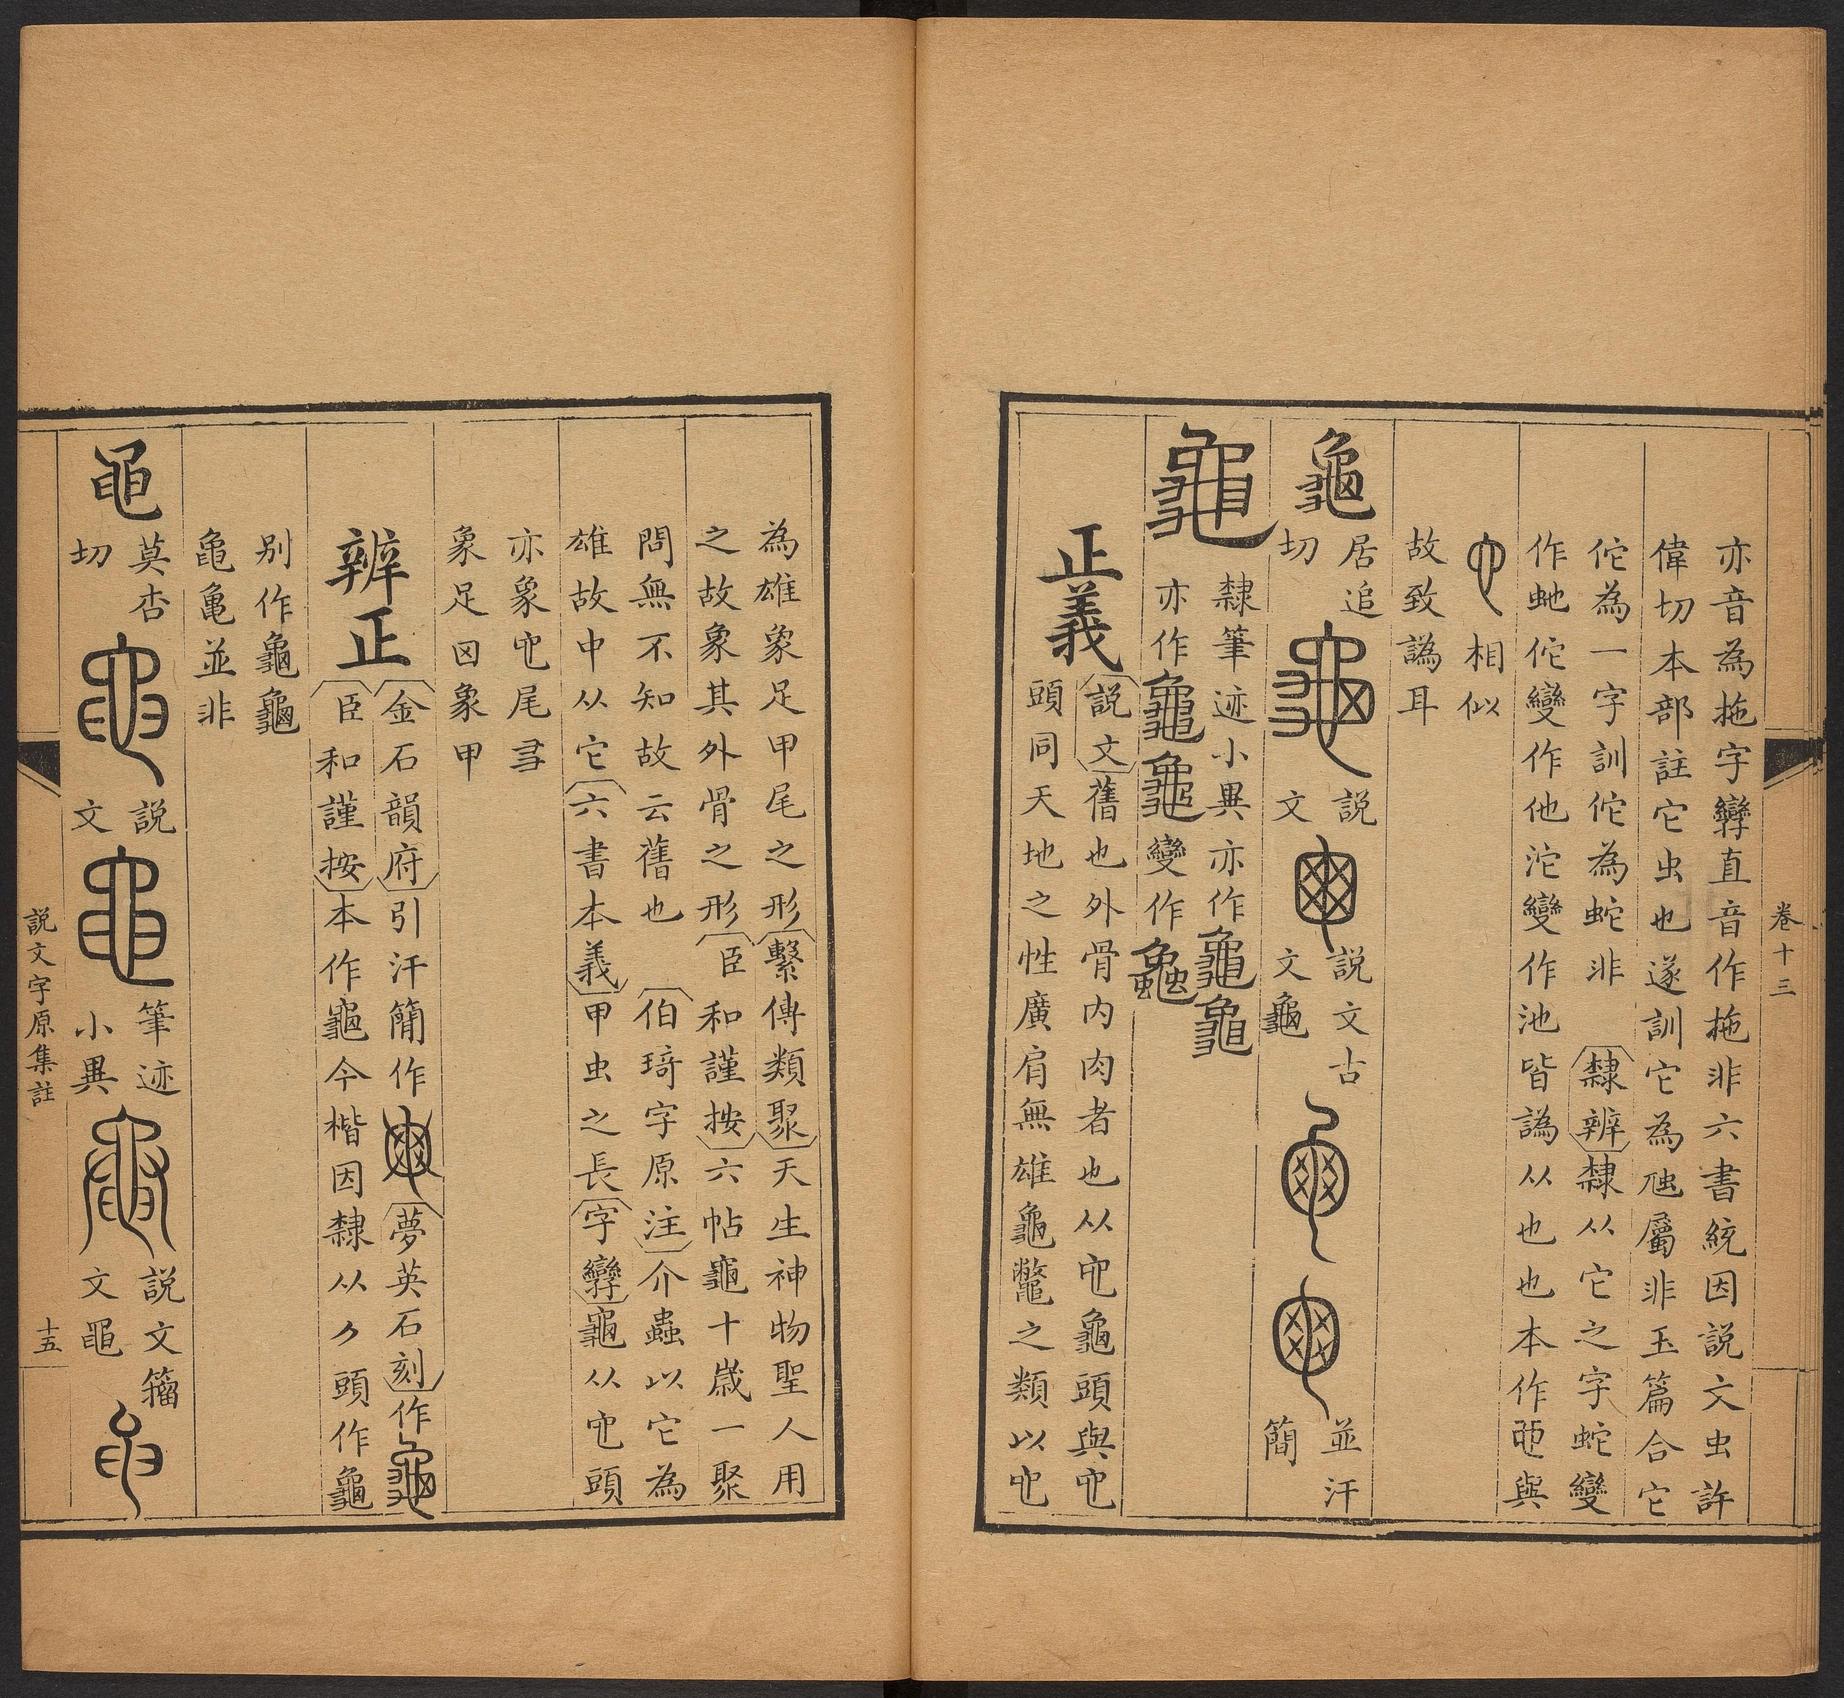 卷十三
亦音為拖字孿直音作拖非六書統因説文虫許
偉切本部註它虫也遂訓它為虺屬非玉篇合它
佗為一字訓佗為蛇非 隸辨隸从它之字蛇變
作虵佗變作他沱變作池皆譌从也也本作與
相似
故致譌耳
龜
居追
切
説
文
説文古
文龜
並汗
簡
龜
隸筆迹小異亦作龜龜
亦作龜龜變作
正義
説文舊也外骨内肉者也从它龜頭與它
頭同天地之性廣肩無雄龜鼈之類以它
為雄象足甲尾之形繫傳類聚天生神物聖人用
之故象其外骨之形臣和謹按六帖龜十歲一聚
問無不知故云舊也伯琦字原注介蟲以它為
雄故中从它六書本義甲虫之長字孿龜从它頭
亦象它尾
象足 象甲
辨正
金石韻府引汗簡作 夢英石刻作
臣和謹按本作龜今楷因隸从⺈頭作龜
别作龜龜
並非
黽
莫杏
切
説
文
筆迹
小異
説文籀
文黽
説文字原集註
十五